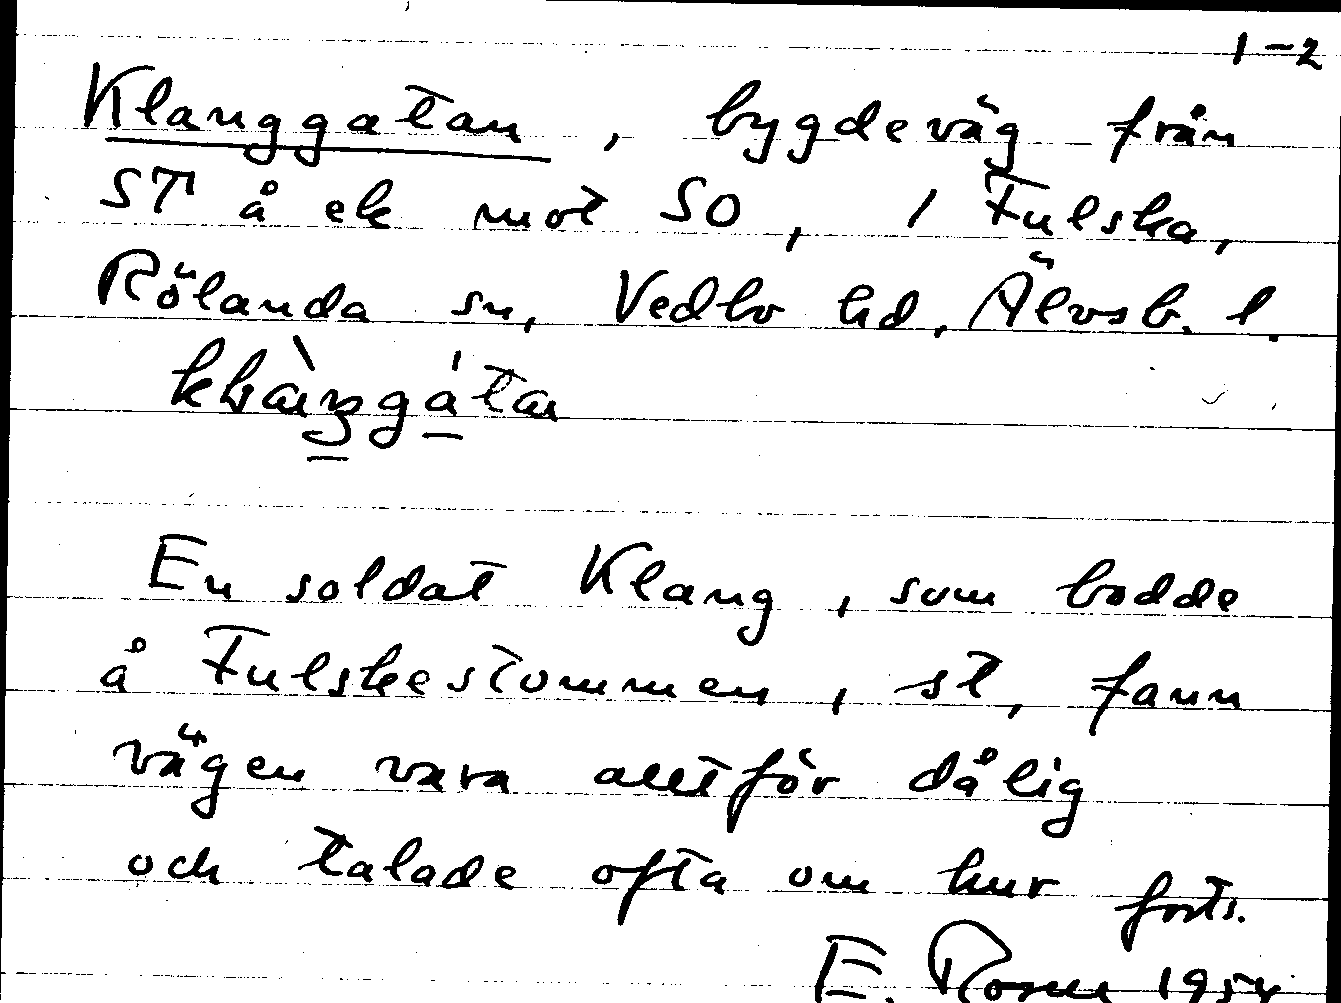 1-2
Klanggatan, bygdeväg från
ST å ek mot SO, i Fulska,
Rölanda sn, Vedbo hd, Älvsb. l.
En soldat Klang, som bodde
å Fulskestommen, st, fann
vägen vara alltför dålig
och talade ofta om hur forts.
E. 1954